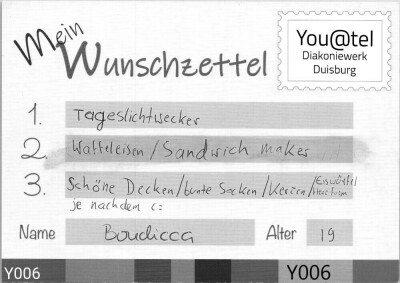 Mein
Wunschzettel
You@tel
Diakoniewerk
Duisburg
1. Tageslichtwecker
2. Waffeleisen/Sandwich maker
3. Schöne Decken/bunte Socken/Kerzen/Eiswürfel
je nachdem c:
Name Boudicca Alter 19
Y006 Y006